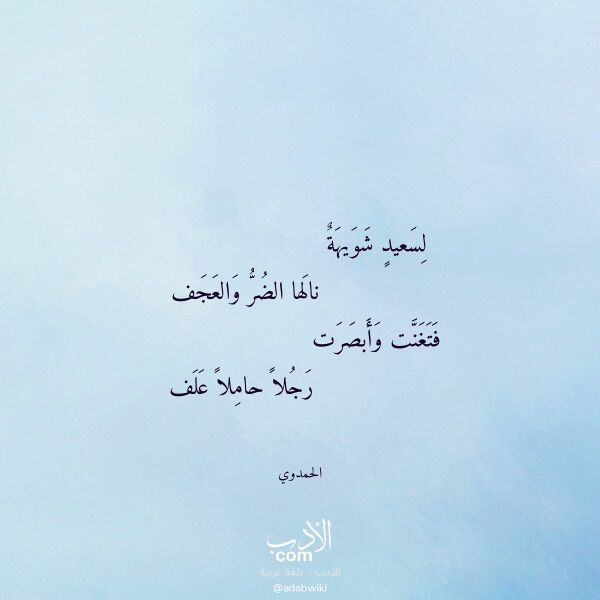 لِسَعيدٍ شَوَيهَةٌ
نالَها الضُرُّ وَالعَجَف
فَتَغَنَّت وَأَبصَرَت
رَجُلاً حامِلاً عَلَف
الحمدوي
الأدب
com
الأدب .. بلغة عربية
@adabwiki